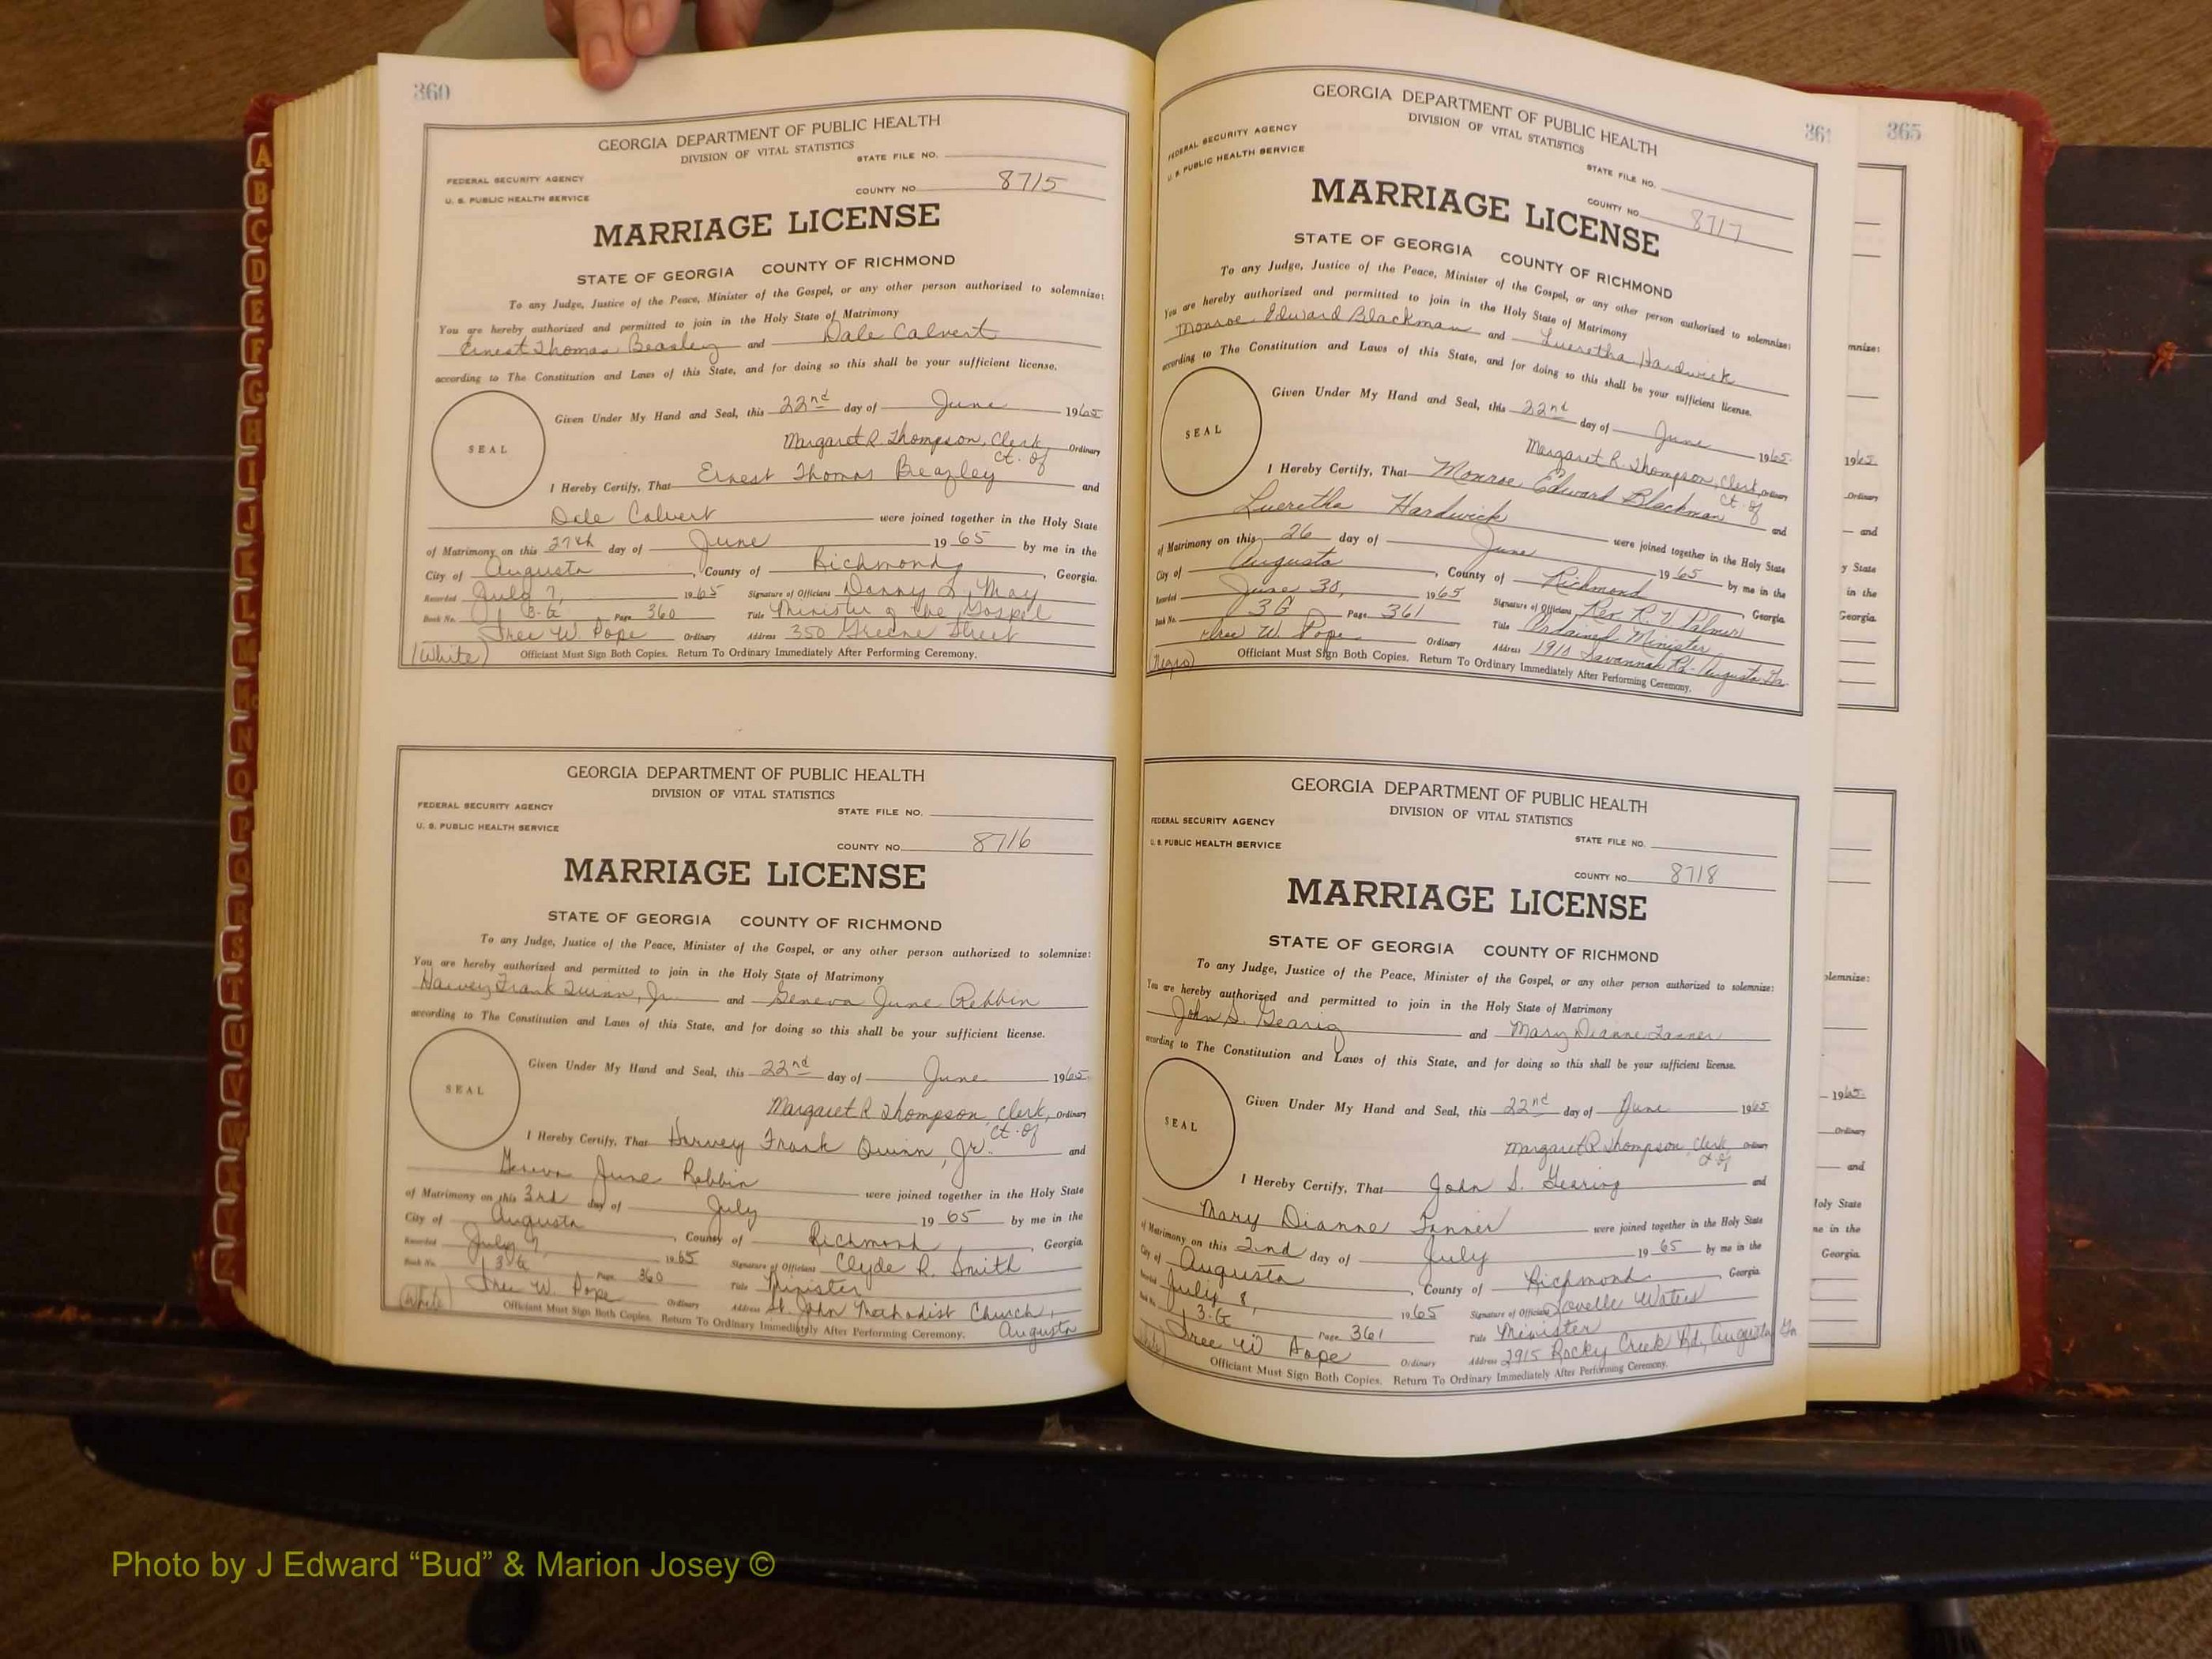 360
GEORGIA DEPARTMENT OF PUBLIC HEALTH
DIVISION OF VITAL STATISTICS
STATE FILE NO.
FEDERAL SECURITY AGENCY
U. S. PUBLIC HEALTH SERVICE
COUNTY NO. 8715
MARRIAGE LICENSE
STATE OF GEORGIA COUNTY OF RICHMOND
To any Judge, Justice of the Peace, Minister of the Gospel, or any other person authorized to solemnize:
You are hereby authorized and permitted to join in the Holy State of Matrimony
Ernest Thomas Beasley and Dale Calvert
according to The Constitution and Laws of this State, and for doing so this shall be your sufficient license.
SEAL
Given Under My Hand and Seal, this 22nd day of June 1965
Margaret R. Thompson, Clerk Ordinary
Ct. of
I Hereby Certify, That Ernest Thomas Beazley and
Dale Calvert were joined together in the Holy State
of Matrimony on this 27th day of June 19 65 by me in the
City of Augusta, County of Richmond, Georgia.
Recorded July 7, 1965 Signature of Officiant Danny L. May
Book No. 3-G Page 360 Title Minister of the Gospel
W. Pope Ordinary Address 350 Greene Street
(White) Officiant Must Sign Both Copies. Return To Ordinary Immediately After Performing Ceremony.
GEORGIA DEPARTMENT OF PUBLIC HEALTH
DIVISION OF VITAL STATISTICS
FEDERAL SECURITY AGENCY
U. S. PUBLIC HEALTH SERVICE
STATE FILE NO.
COUNTY NO. 8716
MARRIAGE LICENSE
STATE OF GEORGIA COUNTY OF RICHMOND
To any Judge, Justice of the Peace, Minister of the Gospel, or any other person authorized to solemnize:
You are hereby authorized and permitted to join in the Holy State of Matrimony
Harvey Frank Quinn, Jr. and Geneva June Rebbin
according to The Constitution and Laws of this State, and for doing so this shall be your sufficient license.
SEAL
Given Under My Hand and Seal, this 22nd day of June 1965
Margaret R Thompson, Clerk, Ordinary
Ct. of
I Hereby Certify, That Harvey Frank Quinn, Jr. and
Geneva June Rebbin were joined together in the Holy State
of Matrimony on this 3rd day of July 19 65 by me in the
City of Augusta, County of Richmond, Georgia.
Recorded July 7, 1965 Signature of Officiant Clyde R. Smith
Book No. 3-G Page 360 Title Minister
W. Pope Ordinary Address St. John Methodist Church,
(White) Officiant Must Sign Both Copies. Return To Ordinary Immediately After Performing Ceremony. Augusta
361
GEORGIA DEPARTMENT OF PUBLIC HEALTH
DIVISION OF VITAL STATISTICS
FEDERAL SECURITY AGENCY
U. S. PUBLIC HEALTH SERVICE
STATE FILE NO.
COUNTY NO. 8717
MARRIAGE LICENSE
STATE OF GEORGIA COUNTY OF RICHMOND
To any Judge, Justice of the Peace, Minister of the Gospel, or any other person authorized to solemnize:
You are hereby authorized and permitted to join in the Holy State of Matrimony
Monroe Edward Blackman and Lueretha Hardwick
according to The Constitution and Laws of this State, and for doing so this shall be your sufficient license.
SEAL
Given Under My Hand and Seal, this 22nd day of June 1965
Margaret R. Thompson, Clerk, Ordinary
Ct. of
I Hereby Certify, That Monroe Edward Blackman and
Lueretha Hardwick were joined together in the Holy State
of Matrimony on this 26 day of June 19 65 by me in the
City of Augusta, County of Richmond Georgia
Recorded June 30, 1965 Signature of Officiant Rev. R. V. Palmer
Book No. 3G Page 361 Title Ordained Minister
W. Pope Ordinary Address 1910 Savannah Rd. Augusta Ga.
(Negro) Officiant Must Sign Both Copies. Return To Ordinary Immediately After Performing Ceremony.
GEORGIA DEPARTMENT OF PUBLIC HEALTH
DIVISION OF VITAL STATISTICS
FEDERAL SECURITY AGENCY
U. S. PUBLIC HEALTH SERVICE
STATE FILE NO.
COUNTY NO. 8718
MARRIAGE LICENSE
STATE OF GEORGIA COUNTY OF RICHMOND
To any Judge, Justice of the Peace, Minister of the Gospel, or any other person authorized to solemnize:
You are hereby authorized and permitted to join in the Holy State of Matrimony
John S. Gearig and Mary Dianne Tanner
according to The Constitution and Laws of this State, and for doing so this shall be your sufficient license.
SEAL
Given Under My Hand and Seal, this 22nd day of June 1965
Margaret R Thompson, Clerk, Ordinary
Ct. of
I Hereby Certify, That John S. Gearing and
Mary Dianne Tanner were joined together in the Holy State
of Matrimony on this 2nd day of July 19 65 by me in the
City of Augusta, County of Richmond, Georgia
Recorded July 8, 1965 Signature of Officiant Lovelle Waters
Book No. 3-G Page 361 Title Minister
W. Pope Ordinary Address 2915 Rocky Creek Rd, Augusta, Ga
Officiant Must Sign Both Copies. Return To Ordinary Immediately After Performing Ceremony.
365
1965
Ordinary
and
y State
in the
Georgia
olemnize:
1965
Ordinary
and
Holy State
me in the
Georgia.
A
B
C
D
E
F
G
H
I
J
K
L
M
Mc
N
O
P
Q
R
S
T
U
V
W
X
Y
Z
Photo by J Edward “Bud” & Marion Josey ©